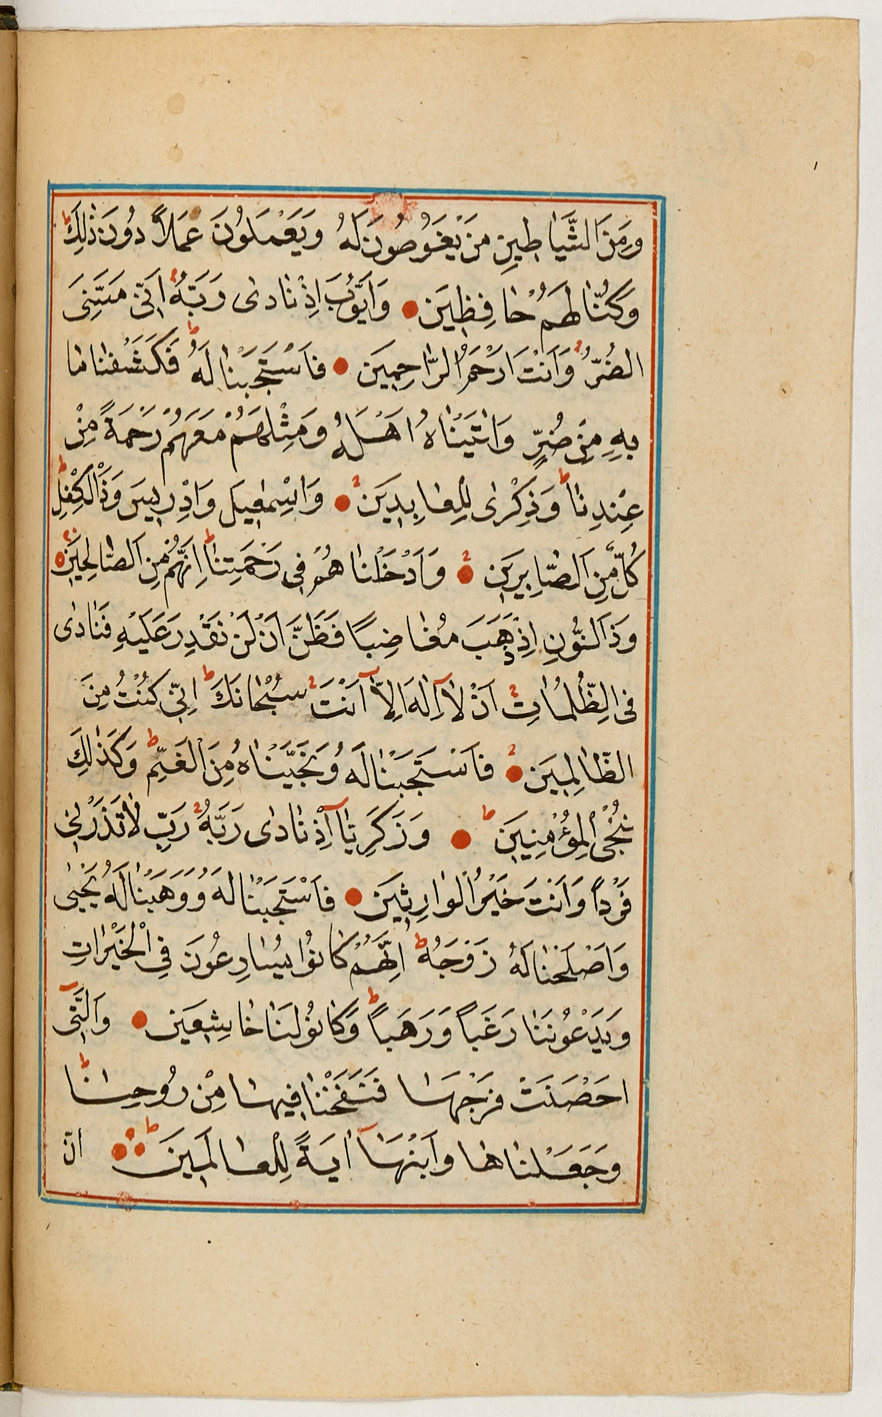 وَمِنَ الشَّيَاطِينِ مَنْ يَغُوصُونَ لَهُ وَيَعْمَلُونَ عَمَلاً دُونَ ذٰلِكَ ط
وَكُنَّا لَهُمْ حَافِظِينَ وَاَيُّوبَ اِذْ نَادٰى رَبَّهُ اَنّٖى مَسَّنِىَ
الضُّرُّ وَاَنْتَ اَرْحَمُ الرَّاحِمِينَ فَاسْتَجَبْنَا لَهُ ط فَكَشَفْنَا مَا
بِهِ مِنْ ضُرٍّ وَاٰتَيْنَاهُ اَهْلَهُ وَمِثْلَهُمْ مَعَهُمْ رَحْمَةً مِنْ
عِنْدِنَا ط وَذِكْرٰى لِلْعَابِدِينَ وَاِسْمٰعِيلَ وَاِدْرِيسَ وَذَا الْكِفْلِ ط
كُلٌّ مِنَ الصَّابِرِينَ وَاَدْخَلْنَاهُمْ فِى رَحْمَتِنَا ط اِنَّهُمْ مِنَ الصَّالِحِينَ
وَذَا النُّونِ اِذْ ذَهَبَ مُغَاضِبًا فَظَنَّ اَنْ لَنْ نَقْدِرَ عَلَيْهِ فَنَادٰى
فِى الظُّلُمَاتِ اَنْ لَا اِلٰهَ اِلَّا اَنْتَ سُبْحَانَكَ ط اِنِّى كُنْتُ مِنَ
الظَّالِمِينَ فَاسْتَجَبْنَا لَهُ وَنَجَّيْنَاهُ مِنَ الْغَمِّ ط وَكَذٰلِكَ
نُنْجِى الْمُؤْمِنِينَ ط وَزَكَرِيَّا اِذْ نَادٰى رَبَّهُ رَبِّ لَا تَذَرْنِى
فَرْداً وَاَنْتَ خَيْرُ الْوَارِثِينَ فَاسْتَجَبْنَا لَهُ وَوَهَبْنَا لَهُ يَحْيٰى
وَاَصْلَحْنَا لَهُ زَوْجَهُ ط اِنَّهُمْ كَانُوا يُسَارِعُونَ فِى الْخَيْرَاتِ
وَيَدْعُونَنَا رَغَباً وَرَهَباً ط وَكَانُوا لَنَا خَاشِعِينَ وَالَّتٖى
اَحْصَنَتْ فَرْجَهَا فَنَفَخْنَا فِيهَا مِنْ رُوحِنَا ط
وَجَعَلْنَاهَا وَابْنَهَا اٰيَةً لِلْعَالَمِينَ ط انّ